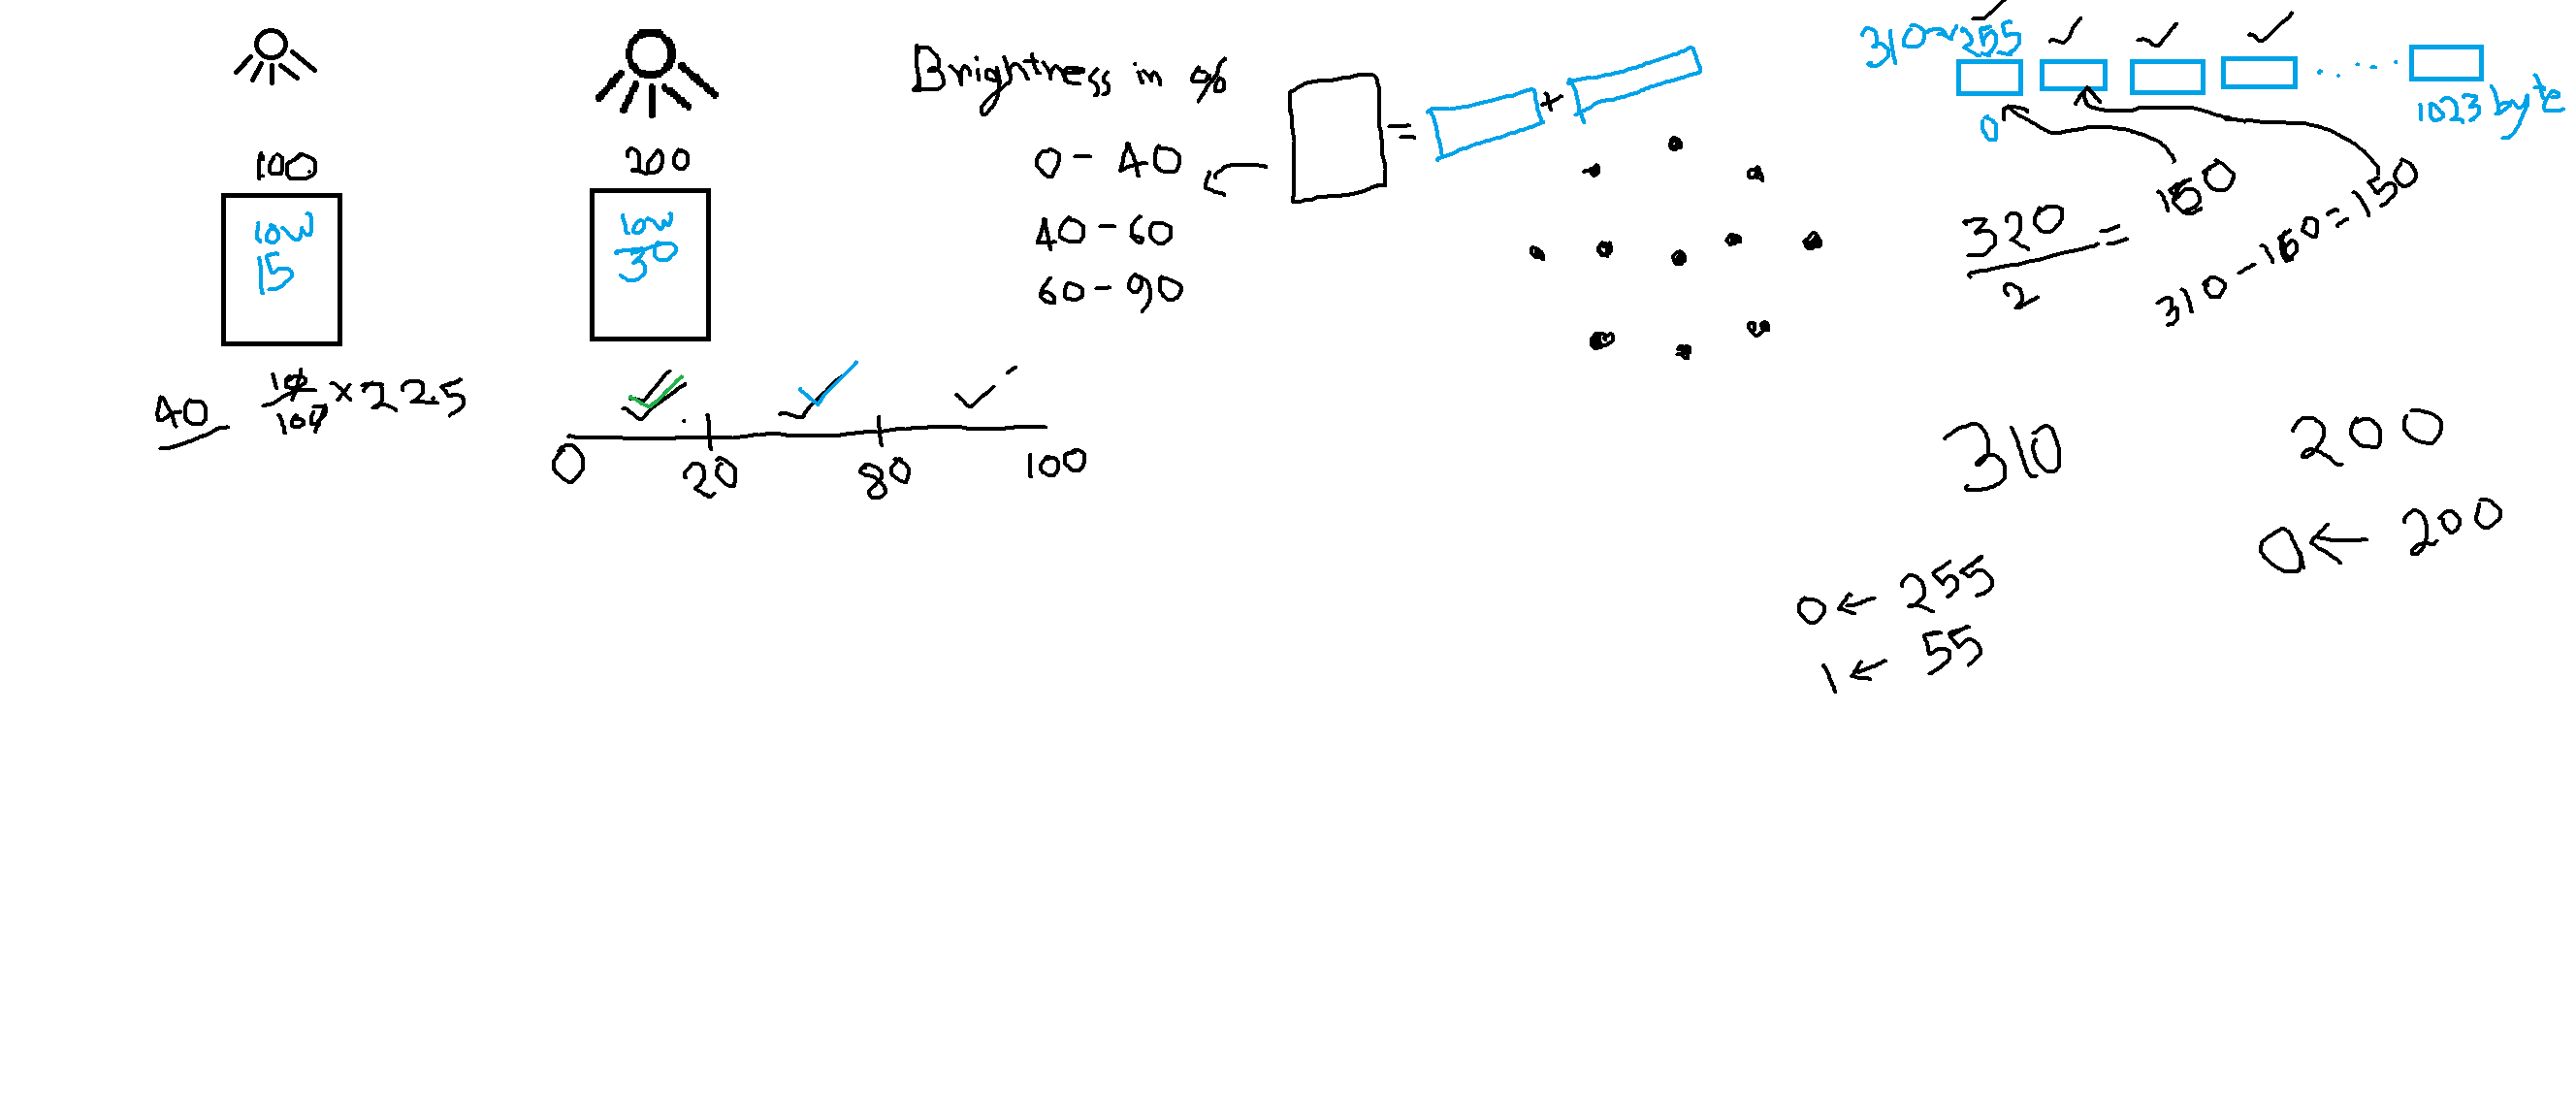 100
low
15
40
10/100 × 225
200
low
30
0 20 80 100
Brightness in %
0 - 40
40 - 60
60 - 90
= +
310~255
0
1023 byte
320/2 = 160
310 - 160 = 150
310
0 ← 255
1 ← 55
200
0 ← 200